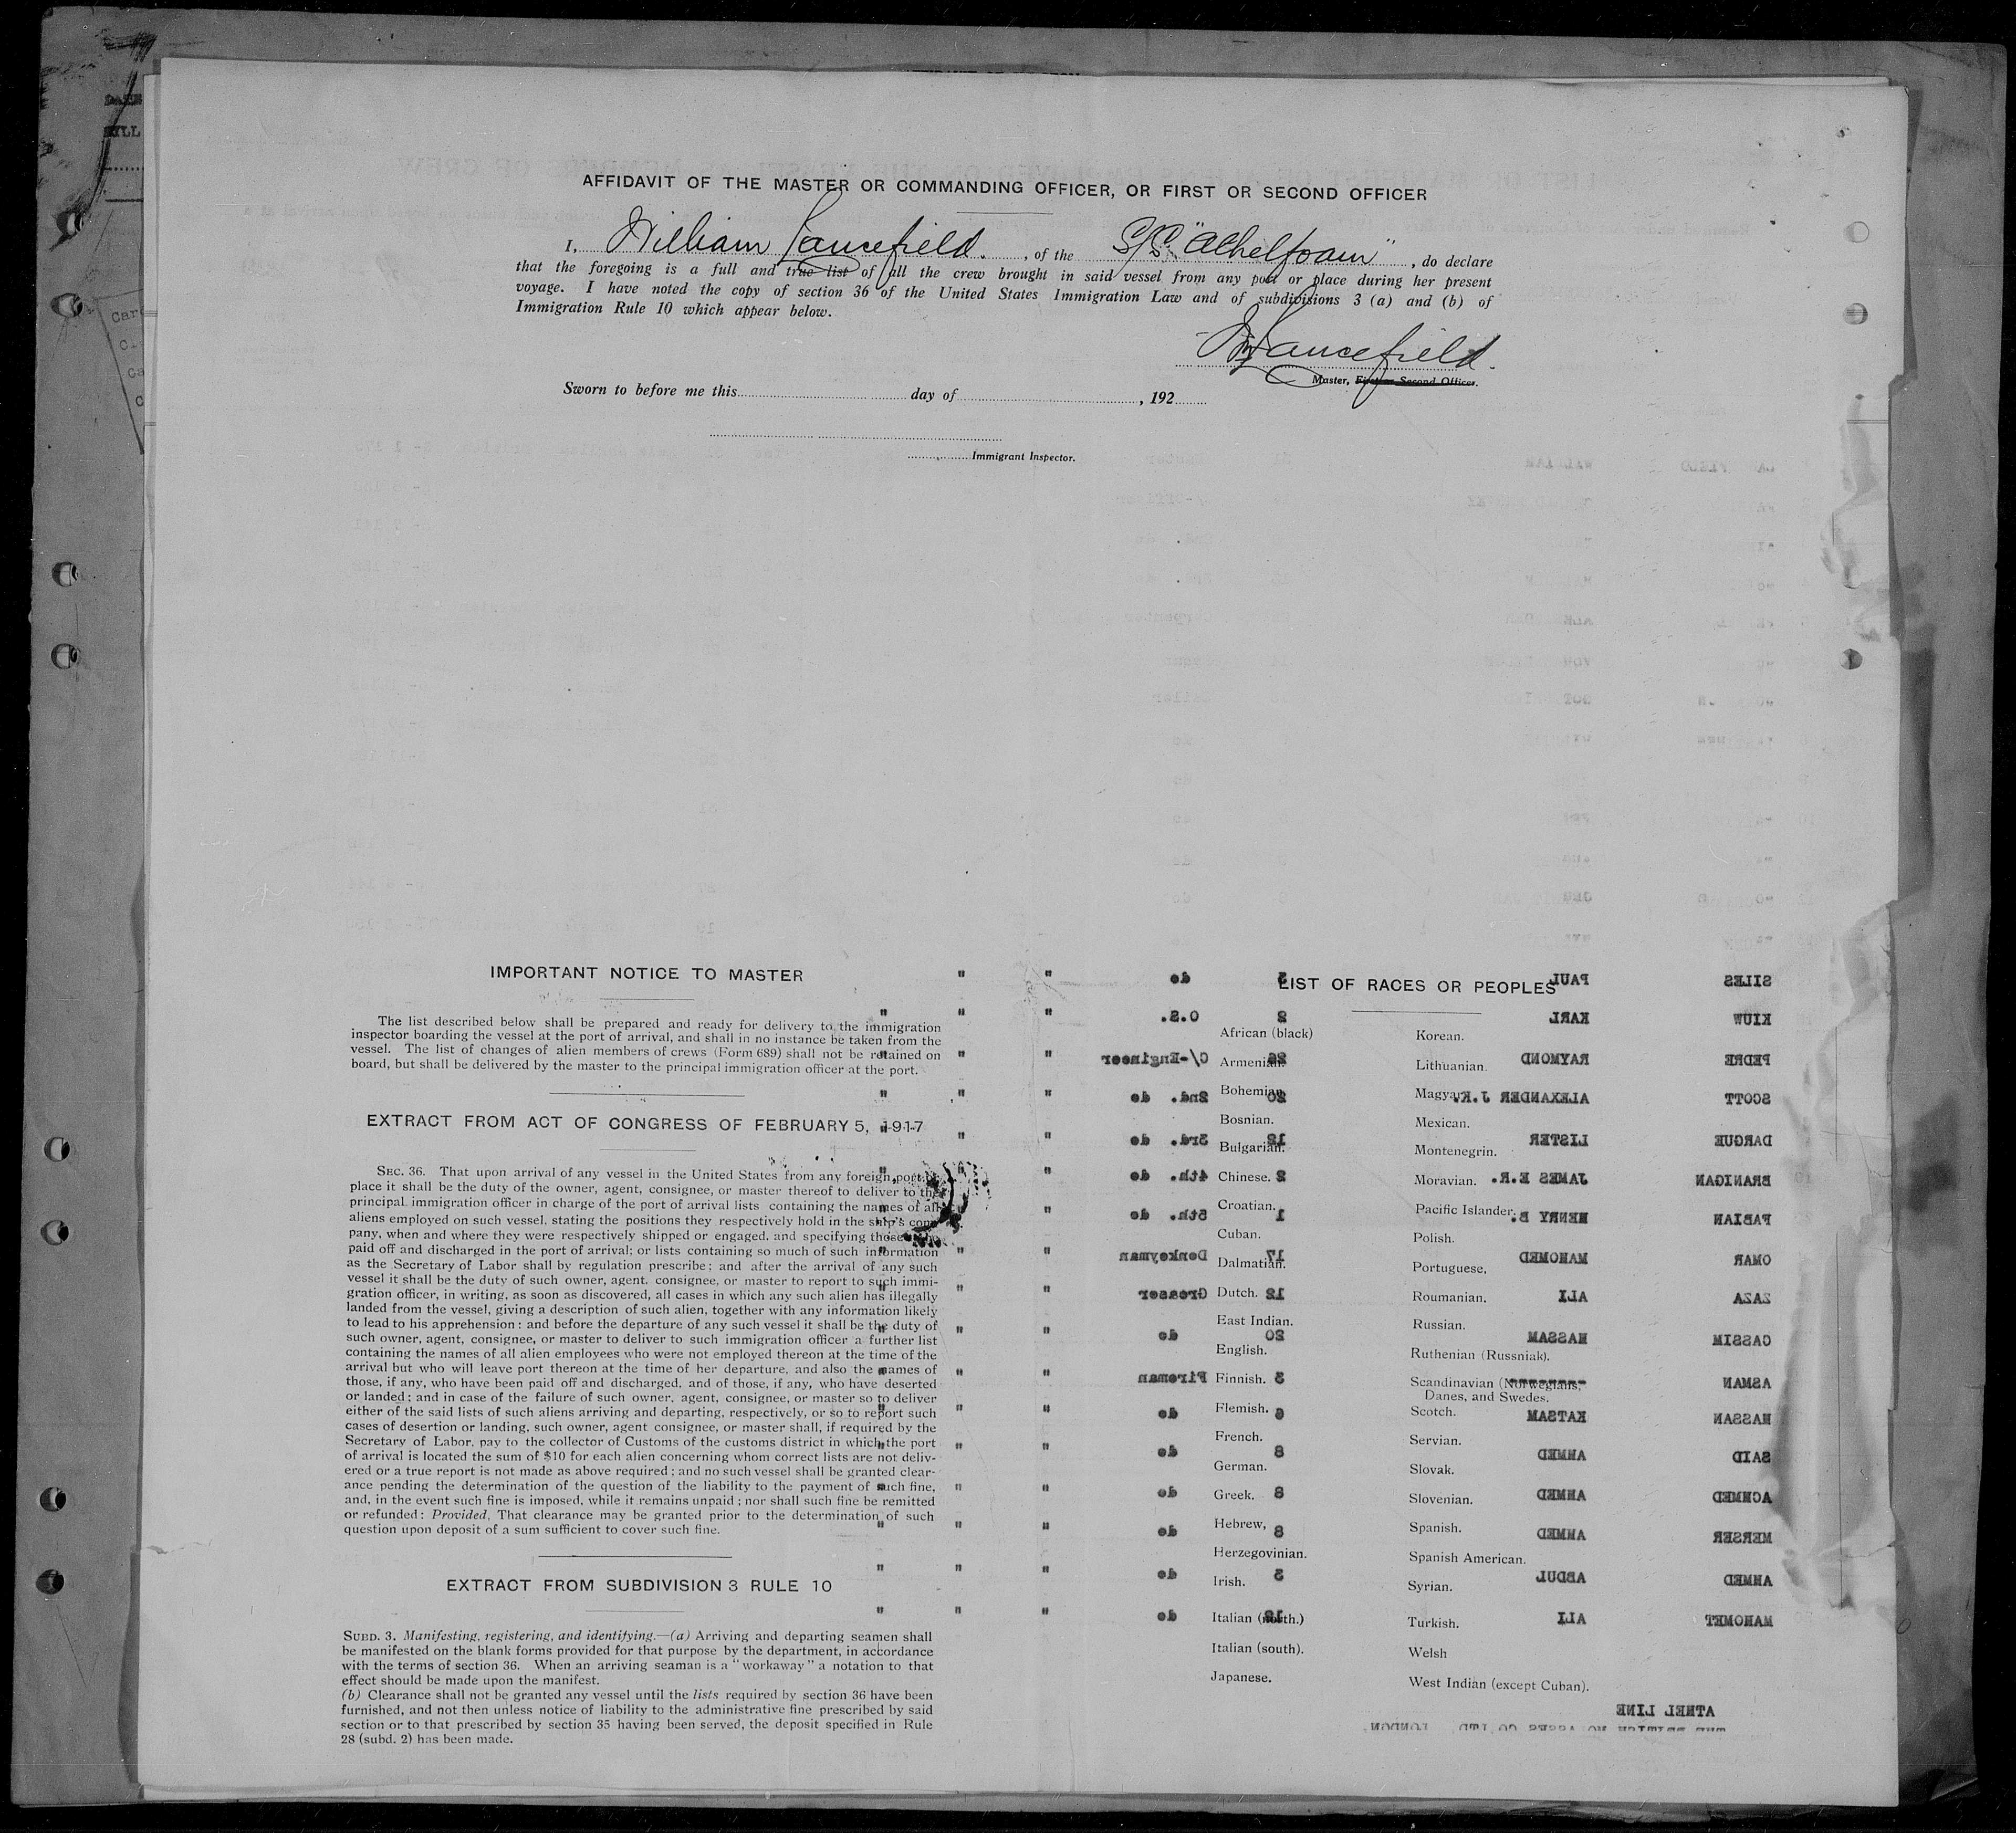 AFFIDAVIT OF THE MASTER OR COMMANDING OFFICER, OR FIRST OR SECOND OFFICER
I, William Lancefield. , of the S/S. "Athelfoam" , do declare
that the foregoing is a full and true list of all the crew brought in said vessel from any port or place during her present
voyage. I have noted the copy of section 36 of the United States Immigration Law and of subdivisions 3 (a) and (b) of
Immigration Rule 10 which appear below.
W Lancefield.
Master, First or Second Officer.
Sworn to before me this day of , 192
Immigrant Inspector.
IMPORTANT NOTICE TO MASTER
The list described below shall be prepared and ready for delivery to the immigration
inspector boarding the vessel at the port of arrival, and shall in no instance be taken from the
vessel. The list of changes of alien members of crews (Form 689) shall not be retained on
board, but shall be delivered by the master to the principal immigration officer at the port.
EXTRACT FROM ACT OF CONGRESS OF FEBRUARY 5, 1917
SEC. 36. That upon arrival of any vessel in the United States from any foreign port or
place it shall be the duty of the owner, agent, consignee, or master thereof to deliver to the
principal immigration officer in charge of the port of arrival lists containing the names of all
aliens employed on such vessel, stating the positions they respectively hold in the ship's com-
pany, when and where they were respectively shipped or engaged, and specifying those to be
paid off and discharged in the port of arrival; or lists containing so much of such information
as the Secretary of Labor shall by regulation prescribe; and after the arrival of any such
vessel it shall be the duty of such owner, agent, consignee, or master to report to such immi-
gration officer, in writing, as soon as discovered, all cases in which any such alien has illegally
landed from the vessel, giving a description of such alien, together with any information likely
to lead to his apprehension; and before the departure of any such vessel it shall be the duty of
such owner, agent, consignee, or master to deliver to such immigration officer a further list
containing the names of all alien employees who were not employed thereon at the time of the
arrival but who will leave port thereon at the time of her departure, and also the names of
those, if any, who have been paid off and discharged, and of those, if any, who have deserted
or landed; and in case of the failure of such owner, agent, consignee, or master so to deliver
either of the said lists of such aliens arriving and departing, respectively, or so to report such
cases of desertion or landing, such owner, agent consignee, or master shall, if required by the
Secretary of Labor, pay to the collector of Customs of the customs district in which the port
of arrival is located the sum of $10 for each alien concerning whom correct lists are not deliv-
ered or a true report is not made as above required; and no such vessel shall be granted clear-
ance pending the determination of the question of the liability to the payment of such fine,
and, in the event such fine is imposed, while it remains unpaid; nor shall such fine be remitted
or refunded: Provided, That clearance may be granted prior to the determination of such
question upon deposit of a sum sufficient to cover such fine.
EXTRACT FROM SUBDIVISION 3 RULE 10
SUBD. 3. Manifesting, registering, and identifying.—(a) Arriving and departing seamen shall
be manifested on the blank forms provided for that purpose by the department, in accordance
with the terms of section 36. When an arriving seaman is a "workaway" a notation to that
effect should be made upon the manifest.
(b) Clearance shall not be granted any vessel until the lists required by section 36 have been
furnished, and not then unless notice of liability to the administrative fine prescribed by said
section or to that prescribed by section 35 having been served, the deposit specified in Rule
28 (subd. 2) has been made.
LIST OF RACES OR PEOPLES
African (black)
Armenian.
Bohemian.
Bosnian.
Bulgarian.
Chinese.
Croatian.
Cuban.
Dalmatian.
Dutch.
East Indian.
English.
Finnish.
Flemish.
French.
German.
Greek.
Hebrew,
Herzegovinian.
Irish.
Italian (north.)
Italian (south).
Japanese.
Korean.
Lithuanian.
Magyar.
Mexican.
Montenegrin.
Moravian.
Pacific Islander.
Polish.
Portuguese,
Roumanian.
Russian.
Ruthenian (Russniak).
Scandinavian (Norwegians,
Danes, and Swedes.
Scotch.
Servian.
Slovak.
Slovenian.
Spanish.
Spanish American.
Syrian.
Turkish.
Welsh
West Indian (except Cuban).
SILES PAUL 3 do
KIUW KARL 2 O.S.
PEDRE RAYMOND 26 C/-Engineer
SCOTT ALEXANDER J.K. 20 2nd. do
DARGUE LISTER 12 3rd. do
BRANIGAN JAMES E.R. 2 4th. do
FABIAN HENRY B. 1 5th. do
OMAR MAHOMED 17 Donkeyman
ZAZA ALI 12 Greaser
CASSIM HASSAM 20 do
ASMAN 3 Fireman
HASSAN KATSAM 6 do
SAID AHMED 8 do
ACHMED AHMED 8 do
MERSER AHMED 8 do
AHMED ABDUL 3 do
MAHOMET ALI 12 do
ATHEL LINE